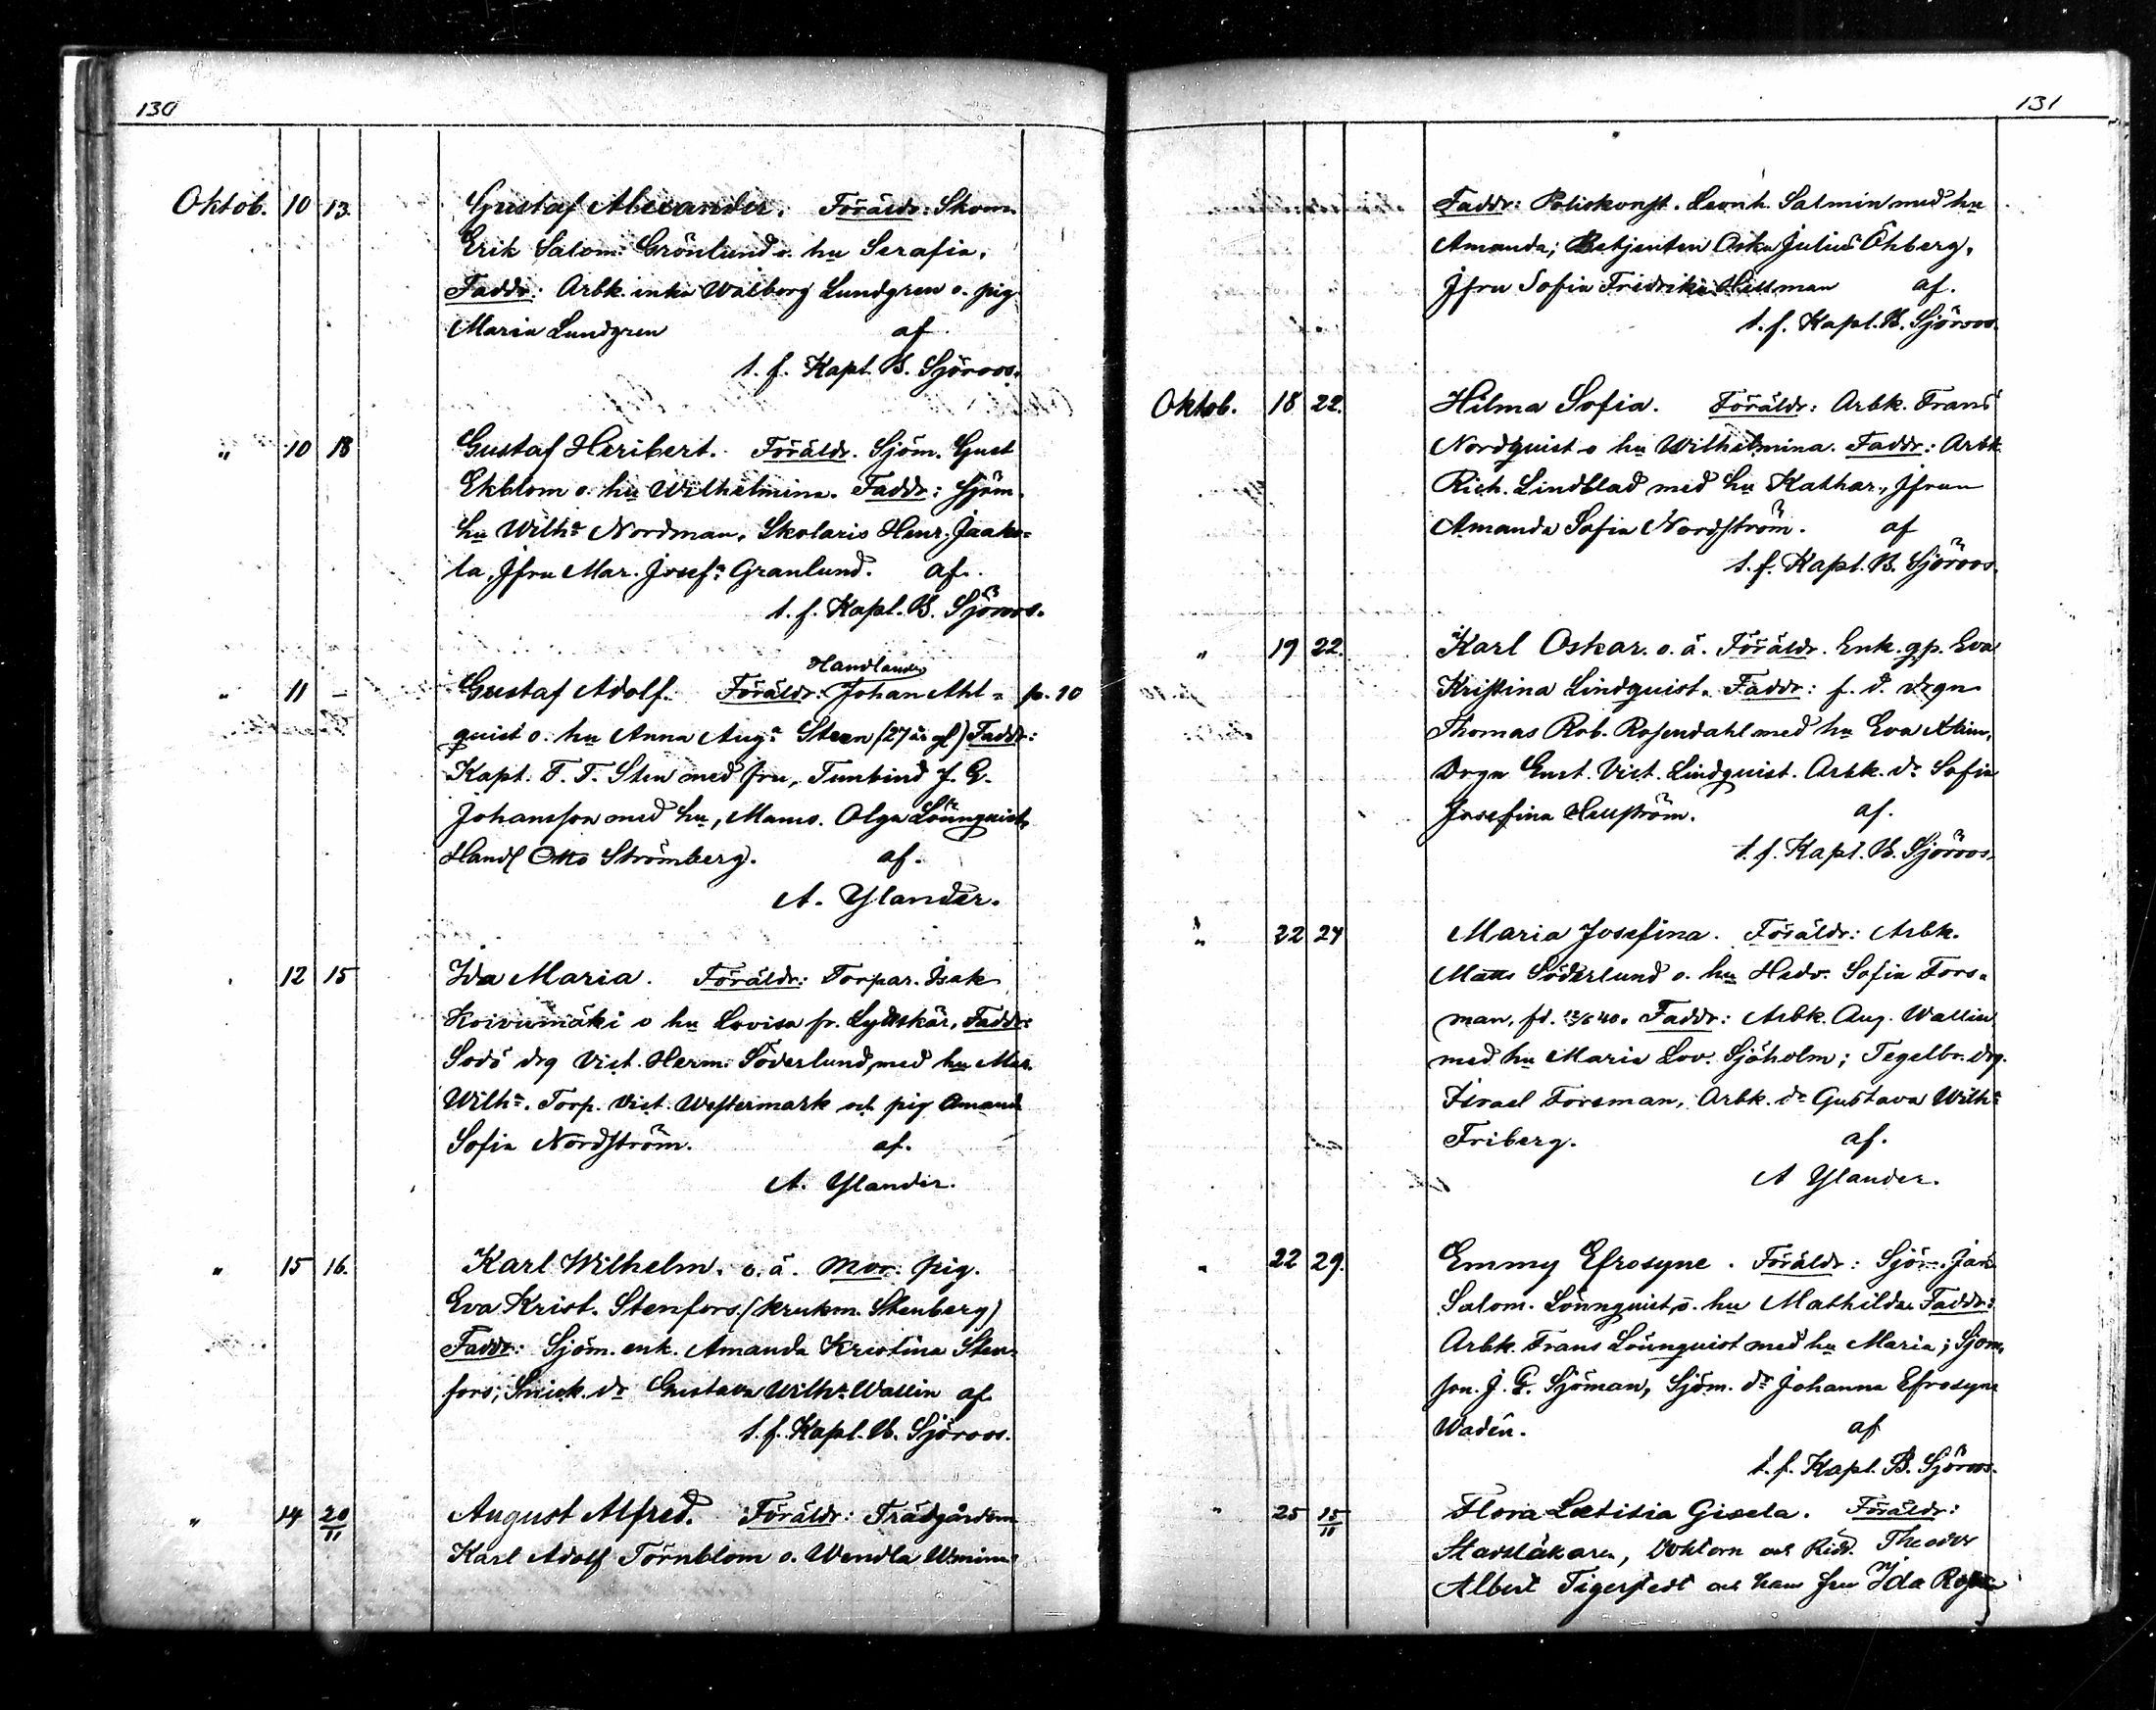 130
Oktob. 10 13. Gustaf Alexander. Föräldr: Skom.
Erik Salom. Grönlund o. hu Serafia.
Faddr: Arbk. enka Walborg Lundgren o. pig.
Maria Lundgren af
t. f. Kapl. B. Sjöroos.
" 10 18 Gustaf Heribert. Föräldr. Sjöm. Gust
Ekblom o. hu Wilhelmina. Faddr: Sjöm.
hu Wilhᵃ Nordman, Skolaris Henr. Jaako-
la, Jfru Mar. Josefᵃ Granlund. af.
t. f. Kapl. B. Sjöroos.
" 11 – Gustaf Adolf. Föräldr: Handland Johan Ahl- p. 10
quist o. hu Anna Augᵃ Steen (27 år gl) Faddr:
Kapt. F. F. Sten med fru, Tunbind J. G.
Johansson med hu, Mams. Olga Lönnquist,
Handl Otto Strömberg. af.
A. Ylander.
" 12 15 Ida Maria. Föräldr: Torpar. Isak
Koivumäki o hu Lovisa fr. Lyttskär. Faddr:
Sodö drg Vict. Herm. Söderlund med hu Mar.
Wilhᵃ. Torp. Vict. Westermark och pig Amanda
Sofia Nordström. af.
A. Ylander.
" 15 16. Karl Wilhelm. o. ä. Mor. pig.
Eva Krist. Stenfors (krukm. Stenberg)
Faddr: Sjöm. enk. Amanda Kristina Sten-
fors; Snick. dʳ Gustava Wilhᵃ Wallin af.
t. f. Kapl. B. Sjöroos.
" 14 20/11 August Alfred. Föräldr: Trädgårdsm
Karl Adolf Törnblom o. Wendla Wmina
131
Faddr: Poliskonst. Leonh. Salmin med hu
Amanda; Betjenten Oskar Julius Öhberg,
Jfru Sofia Fridrika Hellman af.
t. f. Kapl. B. Sjöroos.
Oktob. 18 22. Hilma Sofia. Föräldr: Arbk. Frans
Nordquist o hu Wilhelmina. Faddr: Arbk.
Rich. Lindblad med hu Kathar., Jfrun
Amanda Sofia Nordström. af
t. f. Kapl. B. Sjöroos.
" 19 22. Karl Oskar. o. ä. Föräldr. Enk. gp. Eva
Kristina Lindquist. Faddr: f. d. drgn
Thomas Rob. Rosendahl med hu Eva
Drgn Gust. Vict. Lindquist. Arbk. dʳ Sofia
Josefina Hellström. af.
t. f. Kapl. B. Sjöroos.
" 22 24 Maria Josefina. Föräldr: Arbk.
Matts Söderlund o. hu Hedv. Sofia Fors-
man, fd. 12/6 40. Faddr: Arbk. Aug. Wallin
med hu Maria Lov. Sjöholm; Tegelbr. drg.
Israel Forsman, Arbk. dʳ Gustava Wilhᵃ
Friberg. af.
A Ylander.
" 22 29. Emmy Efrosyne. Föräldr: Sjöm.
Salom. Lönnquist, o. hu Mathilda. Faddr:
Arbk. Frans Lönnquist med hu Maria; Sjöm.
son. J. G. Sjöman, Sjöm. dʳ Johanna Efrosyne
Wadén. af
t. f. Kapl. B. Sjöroos.
" 25 15/11 Flora Lætitia Gisela. Föräldr:
Stadsläkaren, Doktorn och Ridd. Theodor
Albert Tigerstedt och hans fru Ida